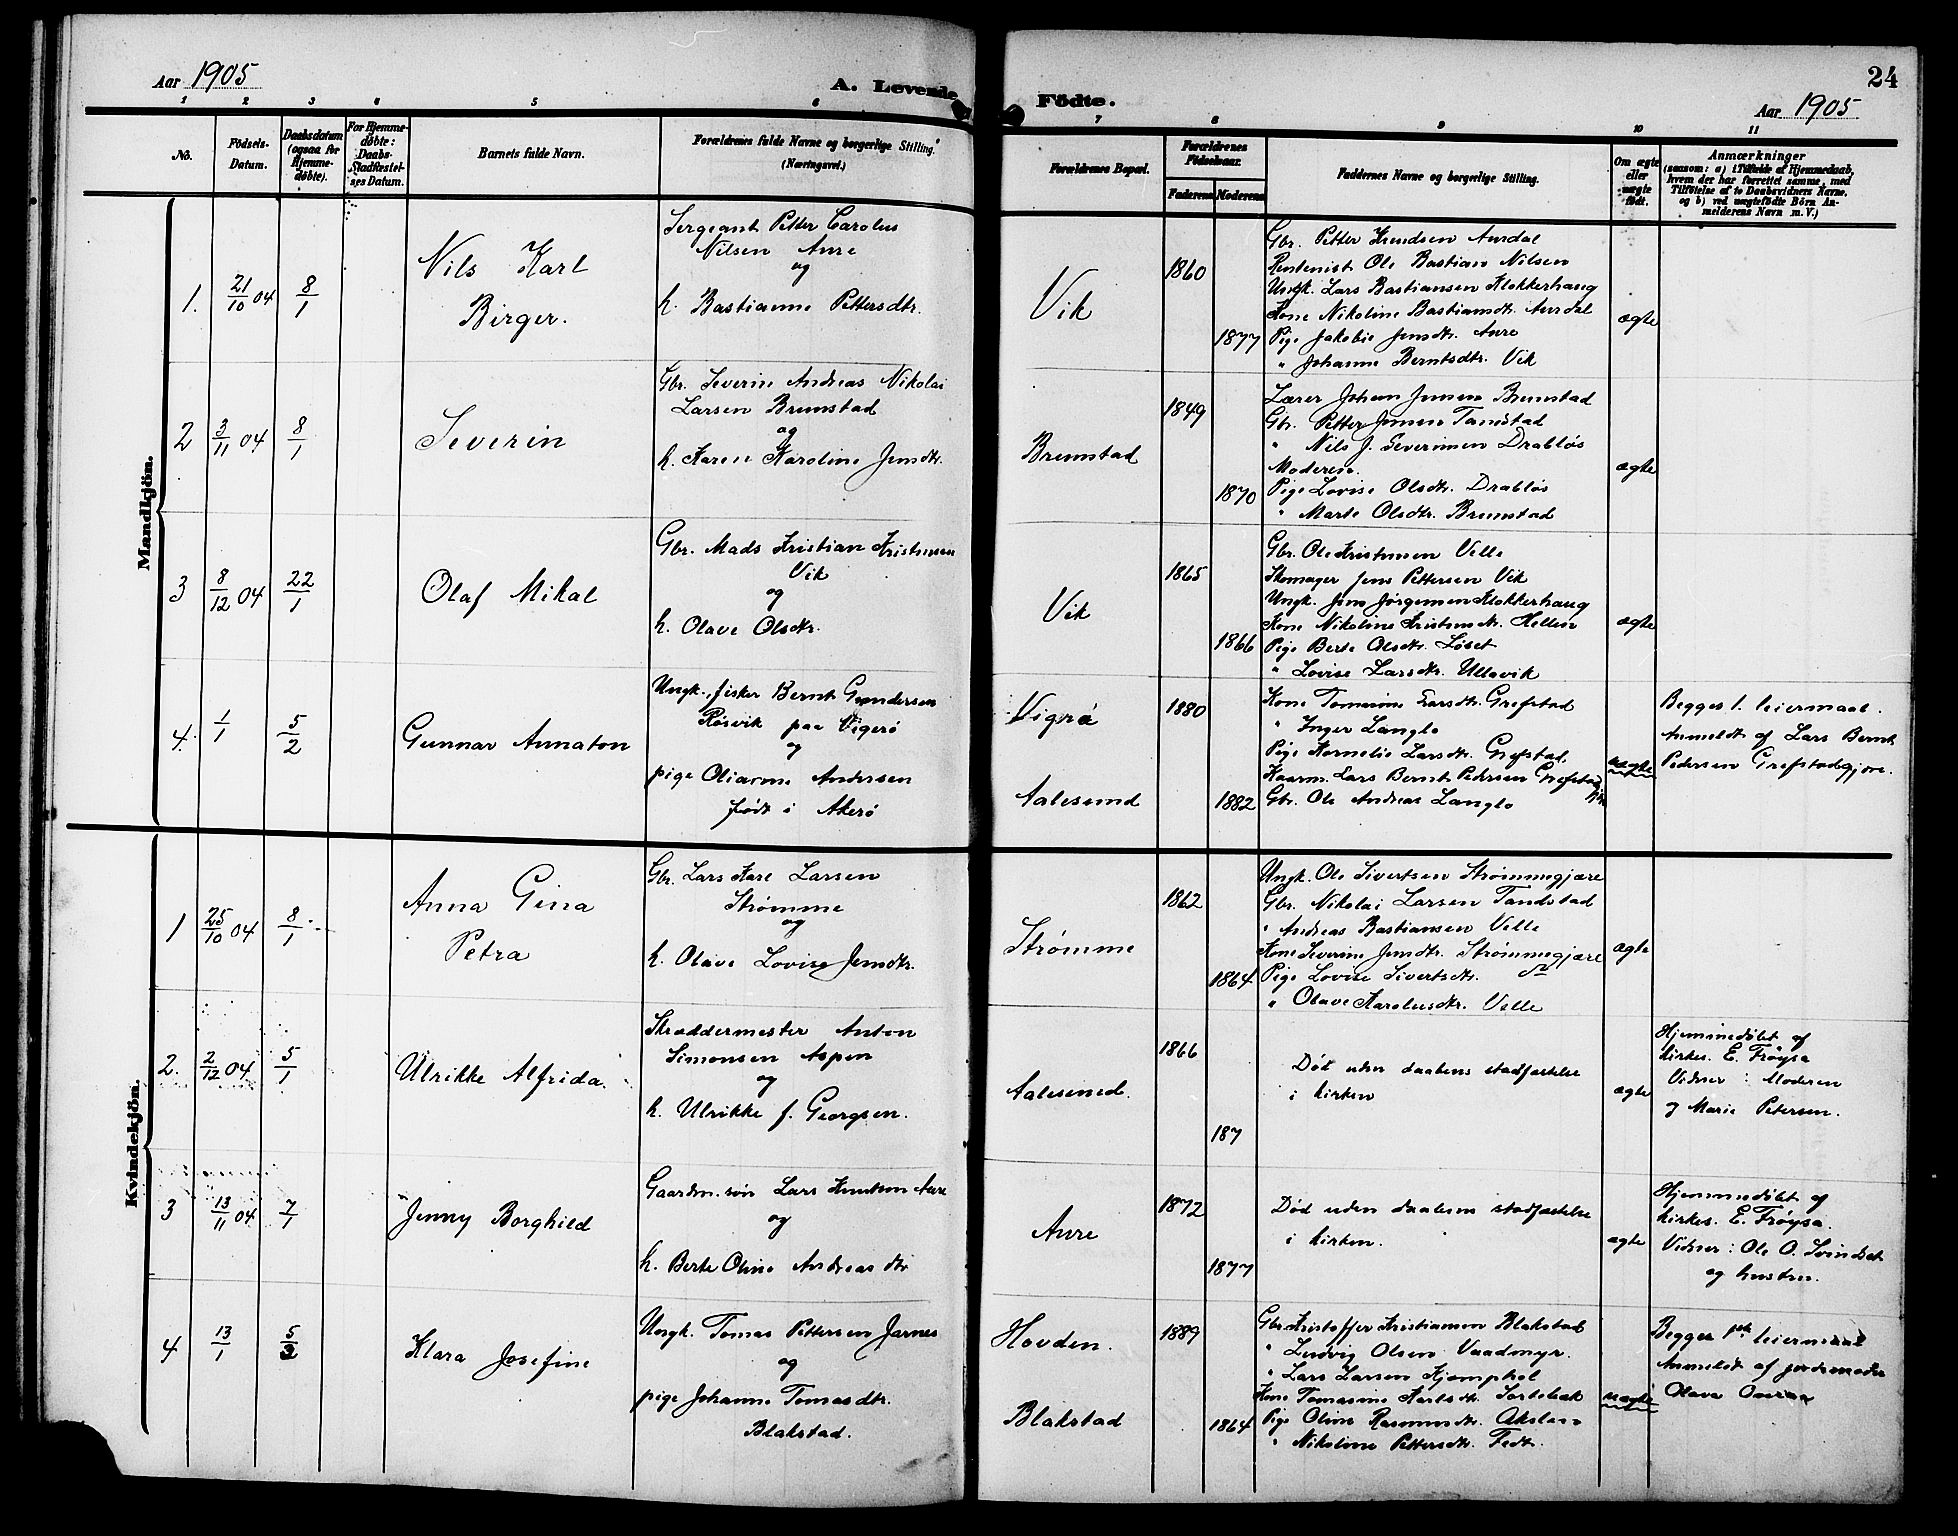 Aar 1905
A. Levende
Födte.
24
Aar 1905
1 2 3 4 5 6 7 8 9 10 11
No.
Födsels-
Datum.
Daabsdatum
(ogsaa for
Hjemme-
döbte).
For Hjemme-
döbte:
Daabs-
Stadfæstel-
ses Datum.
Barnets fulde Navn.
Forældrenes fulde Navne og borgerlige Stilling.
(Næringsvei.)
Forældrenes Bopæl.
Forældrenes
Födselsaar.
Faderens
Moderens
Faddernes Navne og borgerlige Stilling.
Om ægte
eller
uægte
födt.
Anmærkninger
(saasom: a) i Tilfælde af Hjemmedaab,
hvem der har forrettet samme, med
Tilföielse af to Daabsvidners Navne,
og b) ved uægtefödte Börn An-
melderens Navn m. V.)
Mandkjön.
1.
21/10 04
8/1
Nils Karl
Birger.
Sergeant Petter Carolus
Nilsen Aure
og
h. Bastianne Pettersdtr.
Vik
1860
1877
Gbr. Petter Knudsen Aurdal
Rentenist Ole Bastian Nilsen
Ungk. Lars Bastiansen Klokkerhaug
Kone Nikoline Bastiansdtr. Aurdal
Pige Jakobie Jensdtr. Aure
" Johanne Berntsdtr. Vik
ægte
2
3/11 04
8/1
Severin
Gbr. Severin Andreas Nikolai
Larsen Brunstad
og
h. Karen Karoline Jensdtr.
Brunstad
1849
1870
Lærer Johan Jensen Brunstad
Gbr. Petter Jensen Tandstad
" Nils J. Severinsen Drabløs
Moderen.
Pige Lovise Olsdtr. Drabløs
" Marte Olsdtr. Brunstad
ægte
3
8/12 04
22/1
Olaf Mikal
Gbr. Mads Kristian Kristensen
Vik
og
h. Olave Olsdtr.
Vik
1865
1866
Gbr. Ole Kristensen Velle
Skomager Jens Pettersen Vik
Ungk. Jens Jørgensen Klokkerhaug
Kone Nikoline Kristensdtr. Hellen
Pige Berte Olsdtr. Løset
" Lovise Larsdtr. Ullavik
ægte
4.
1/1
5/2
Gunnar Annaton
Ungk., fisker Bernt Gundersen
Røsvik paa Vigerø
og
pige Oliane Andersen
født i Akerø
Vigrø
Aalesund
1880
1882
Kone Tomasine Larsdtr. Grefstad
" Inger Langlo
Pige Kornelie Larsdtr. Grefstad,
Kaarm. Lars Bernt Pedersen Grefstad
Gbr. Ole Andreas Langlo
uægte
Begges 1. leiermaal.
Anmeldt af Lars Bernt
Pedersen Grefstadgjøre.
Kvindekjön.
1
25/10 04
8/1
Anna Gina
Petra
Gbr. Lars Karl Larsen
Strømme
og
h. Olave Lovise Jensdtr.
Strømme
1862
1864
Ungk. Ole Sivertsen Strømmegjære
Gbr. Nikolai Larsen Tandstad
" Andreas Bastiansen Velle
Kone Severine Jensdtr. Strømmegjære
Pige Lovise Sivertsdtr.
" Olave Karolusdtr. Velle
ægte
2.
2/12 04
5/1
Ulrikke Alfrida.
Skræddermester Anton
Simonsen Aspen
og
h. Ulrikke f. Georgsen.
Aalesund.
1866
187
Død uden daabens stadfæstelse
i kirken
ægte
Hjemmedøbt af
kirkes. E. Frøysa
Vidner: Moderen
og Marie Petersen.
3
13/11 04
7/1
Jenny Borghild
Gaardm. søn Lars Knutson Aure
og
h. Berte Oline Andreasdtr
Aure
1872
1877
Død uden daabens stadfæstelse
i kirken.
ægte
Hjemmedøbt af
kirkes. E. Frøysa.
Vidner: Ole O. Svindset
og hustru.
4
13/1
5/2
Klara Josefine
Ungk. Tomas Pettersen Jarnes
og
pige Johanne Tomasdtr.
Blakstad.
Hovden.
Blakstad
1889
1864
Gbr. Kristoffer Kristiansen Blakstad
" Ludvig Olsen Vaadmyr.
" Lars Larsen Kjemphol
Kone Tomasine Karlsdtr. Sortebæk
Pige Oline Rasmusdtr. Akslen
" Nikoline Pettersdtr. Fedt.
uægte
Begges 1ste leiermaal
Anmeldt af jordemoder
Olava